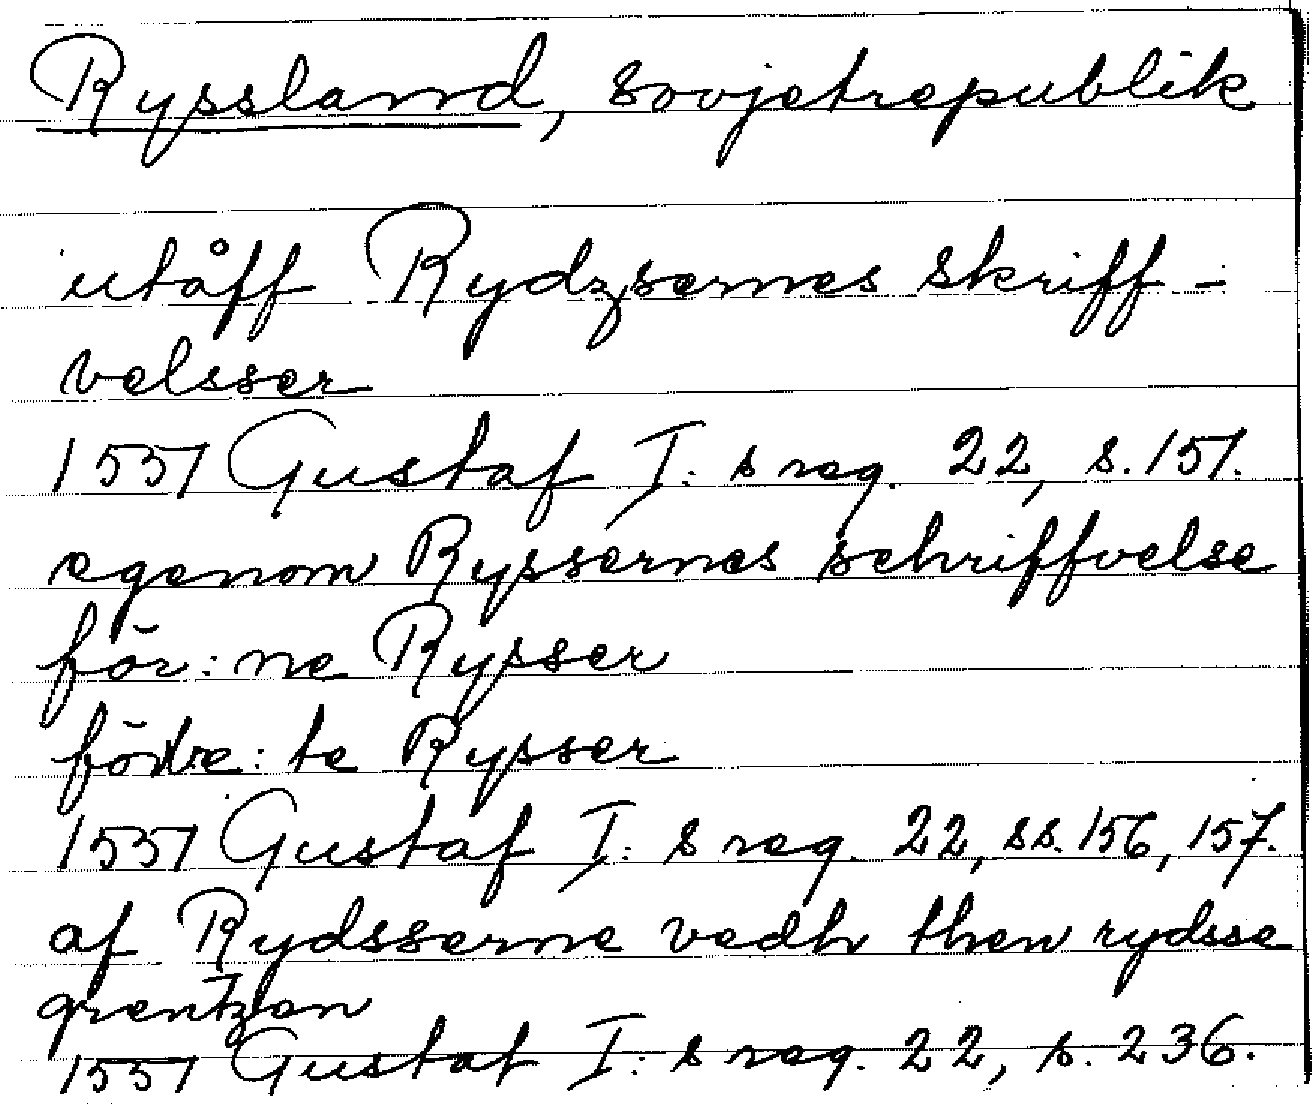 Ryssland, Sovjetrepublik
utåff Rydzsernes skriff-
velsser
1557 Gustaf I:s reg. 22, s. 151.
egenom Ryssernes schriffvelse
för:ne Rysser
födre:te Rysser
1557 Gustaf I:s reg. 22, ss. 156, 157.
af Rydsserne vedh then rydsse
grentzen
1557 Gustaf I:s reg. 22, s. 236.